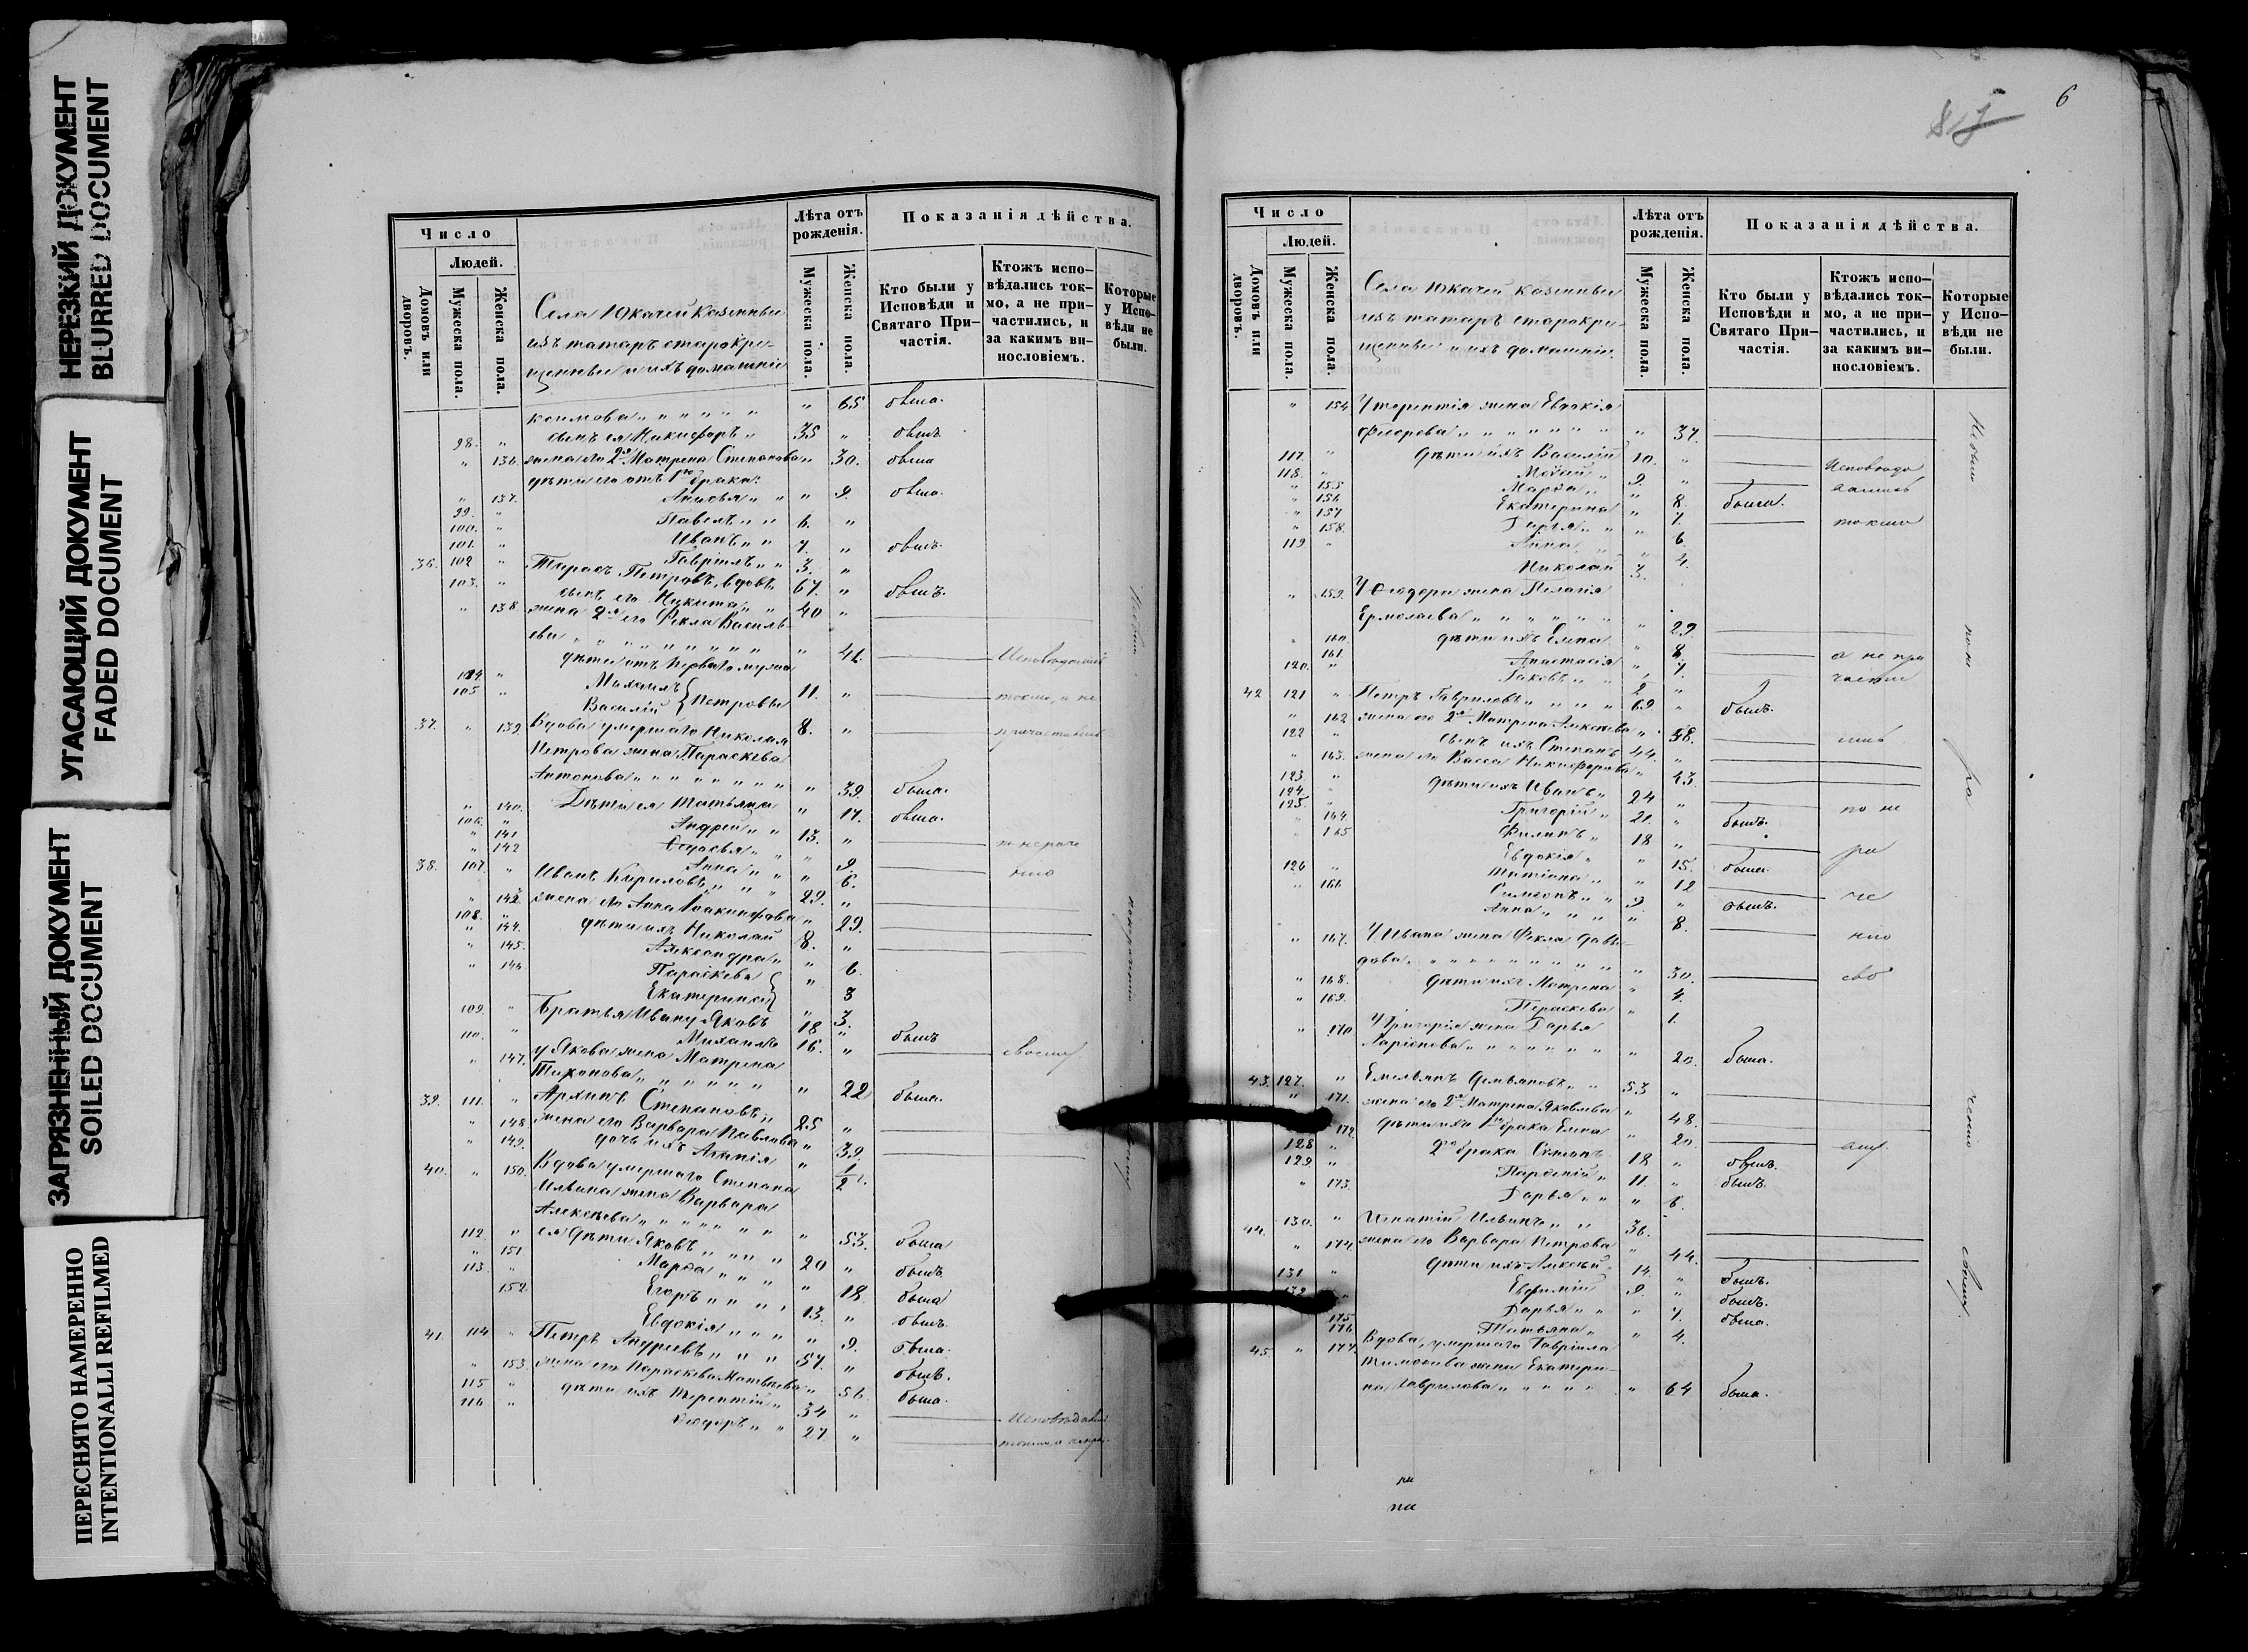 НЕРЕЗКИЙ ДОКУМЕНТ
BLURRED DOCUMENT
УГАСАЮЩИЙ ДОКУМЕНТ
FADED DOCUMENT
ЗАГРЯЗНЕННЫЙ ДОКУМЕНТ
SOILED DOCUMENT
ПЕРЕСНЯТО НАМЕРЕННО
INTENTIONALLI REFILMED
Число
Людей.
Домовъ или дворовъ.
Мужеска пола.
Женска пола.
Села Юкачей казенные
изъ татаръ старокре-
щенные и ихъ домашніе
Лѣта отъ рожденія.
Мужеска пола.
Женска пола.
Показанія дѣйства.
Кто были у Исповѣди и Святаго При-частія.
Ктожъ испо-вѣдались ток-мо, а не при-частились, и за какимъ ви-нословіемъ.
Которые у Испо-вѣди не были.
" 65 была.
98. " сынъ ея Никифоръ " 35 " былъ
" 136. жена его 2я Матрена Степанова " 30. была
дѣти его отъ 1го брака:
" 137. " 9. была.
99. " Павелъ " " 6. "
100. " Иванъ " " 7. " былъ.
101. " Гавріилъ " " 3. "
36. 102 " Тарасъ Петровъ, вдовъ 67. " былъ.
103. " сынъ его Никита " " 40 "
" 138. жена 2я его Фекла Василь-
ева " " " " " " " 42.
дѣти отъ перваго мужа
104. " Михаилъ 11. "
105 " Василій } Петровы 8. "
37. " 139. Вдова умершаго Николая
Петрова жена Параскева
Антонова " " " " " " 39. была.
" 140. Дѣти ея Татьяна " 17. была.
106. " Андрей " " 13. "
" 141 Федосья " " " 9.
" 142 Анна " " " 6.
38. 107. " Иванъ Кириловъ " " " 29. "
" 142. жена его Анна " 29.
108. " дѣти ихъ Николай 8. "
" 144. Александра " " 6.
" 145. Параскева " 3
" 146 Екатерина } " 3.
109. " Братья Ивану Яковъ 18 " былъ
110. " Михаилъ 16. "
" 147. у Якова жена Матрена
Тихонова " " " " " " 22 была.
39. 111. " Архипъ Степановъ " 25 "
" 148. жена его Варвара Павлова " 39.
" 149. дочь ихъ Агапія " 1/2.
40. " 150. Вдова умершаго Степана
Ильина жена Варвара
Алексѣева " " " " " " 53. была
112. " ея дѣти Яковъ " " " 20 " былъ.
" 151 Марѳа " " " " 18 была
113. " Егоръ " " " 13. " былъ.
152. Евдокія " " " " 9. была.
41. 114 " Петръ Андреевъ " " " 57. " былъ.
" 153. жена его Параскева Матвѣева " 56. была.
115 " дѣти ихъ Терентій " 34 "
116 " Ѳеодоръ " " 27. "
6
Число
Людей.
Домовъ или дворовъ.
Мужеска пола.
Женска пола.
Села Юкачей казенные
изъ татаръ старокре-
щенные и ихъ домашніе.
Лѣта отъ рожденія.
Мужеска пола.
Женска пола.
Показанія дѣйства.
Кто были у Исповѣди и Святаго При-частія.
Ктожъ испо-вѣдались ток-мо, а не при-частились, и за какимъ ви-нословіемъ.
Которые у Испо-вѣди не были.
" 154 У Терентія жена Евдокія
Ѳедорова " " " " " " " 37.
117. " дѣти ихъ Василій 10. "
118. " Моѵсей " 9. "
" 155 Марѳа " " 8. была.
" 156 Екатерина " 7.
" 157 Дарья " " " 6.
" 158. Анна " " 4.
119 " Николай 3.
" 159. У Ѳеодора жена Пелагія
Ермолаева " " " " " " 29
" 160. дѣти ихъ Елена " 8.
" 161. Анастасія " 7.
120. " Іаковъ " " 2 "
42 121 " Петръ Гавриловъ " " " 69 " былъ.
" 162 жена его 2я Матрена Алексѣева " 58.
122 " сынъ ихъ Степанъ 44. "
" 163. жена его Васса Никифорова " 43.
123. " дѣти ихъ Иванъ " 24 "
124. " Григорій " 21. " былъ.
125. " Филипъ " 18 "
" 164 Евдокія " " 15. была.
" 165 Татіана " " 12
126 " Симеонъ " " 9. " былъ.
" 166 Анна " " " " 8.
" 167. У Ивана жена Фекла Давы-
дова " " " " " " " 30.
" 168. дѣти ихъ Матрена " 4.
" 169. Параскева " 1.
" 170 У Григорія жена Дарья
Ларіонова " " " " " " 20. была.
43. 127. " Емельянъ Демьяновъ " " 53 "
" 171. жена его 2я Матрена Яковлева " 48.
172 дѣти ихъ 1го брака Елена " 20.
128 " 2го брака Семенъ 18 " былъ.
129. " Парѳеній " 11. " былъ.
" 173. Дарья " " " 6.
44. 130. " Игнатій Ильинъ " " 36.
" 174 жена его Варвара Петрова " 44.
131 " дѣти ихъ Алексѣй 14. " былъ.
132 " Евфимій 9. " былъ.
175 Дарья " " " 7. была.
176 Татьяна " " 4.
45. " 177. Вдова, умершаго Гавріила
Тимоѳеева жена Екатери-
на Гаврилова " " " " " 64 была.